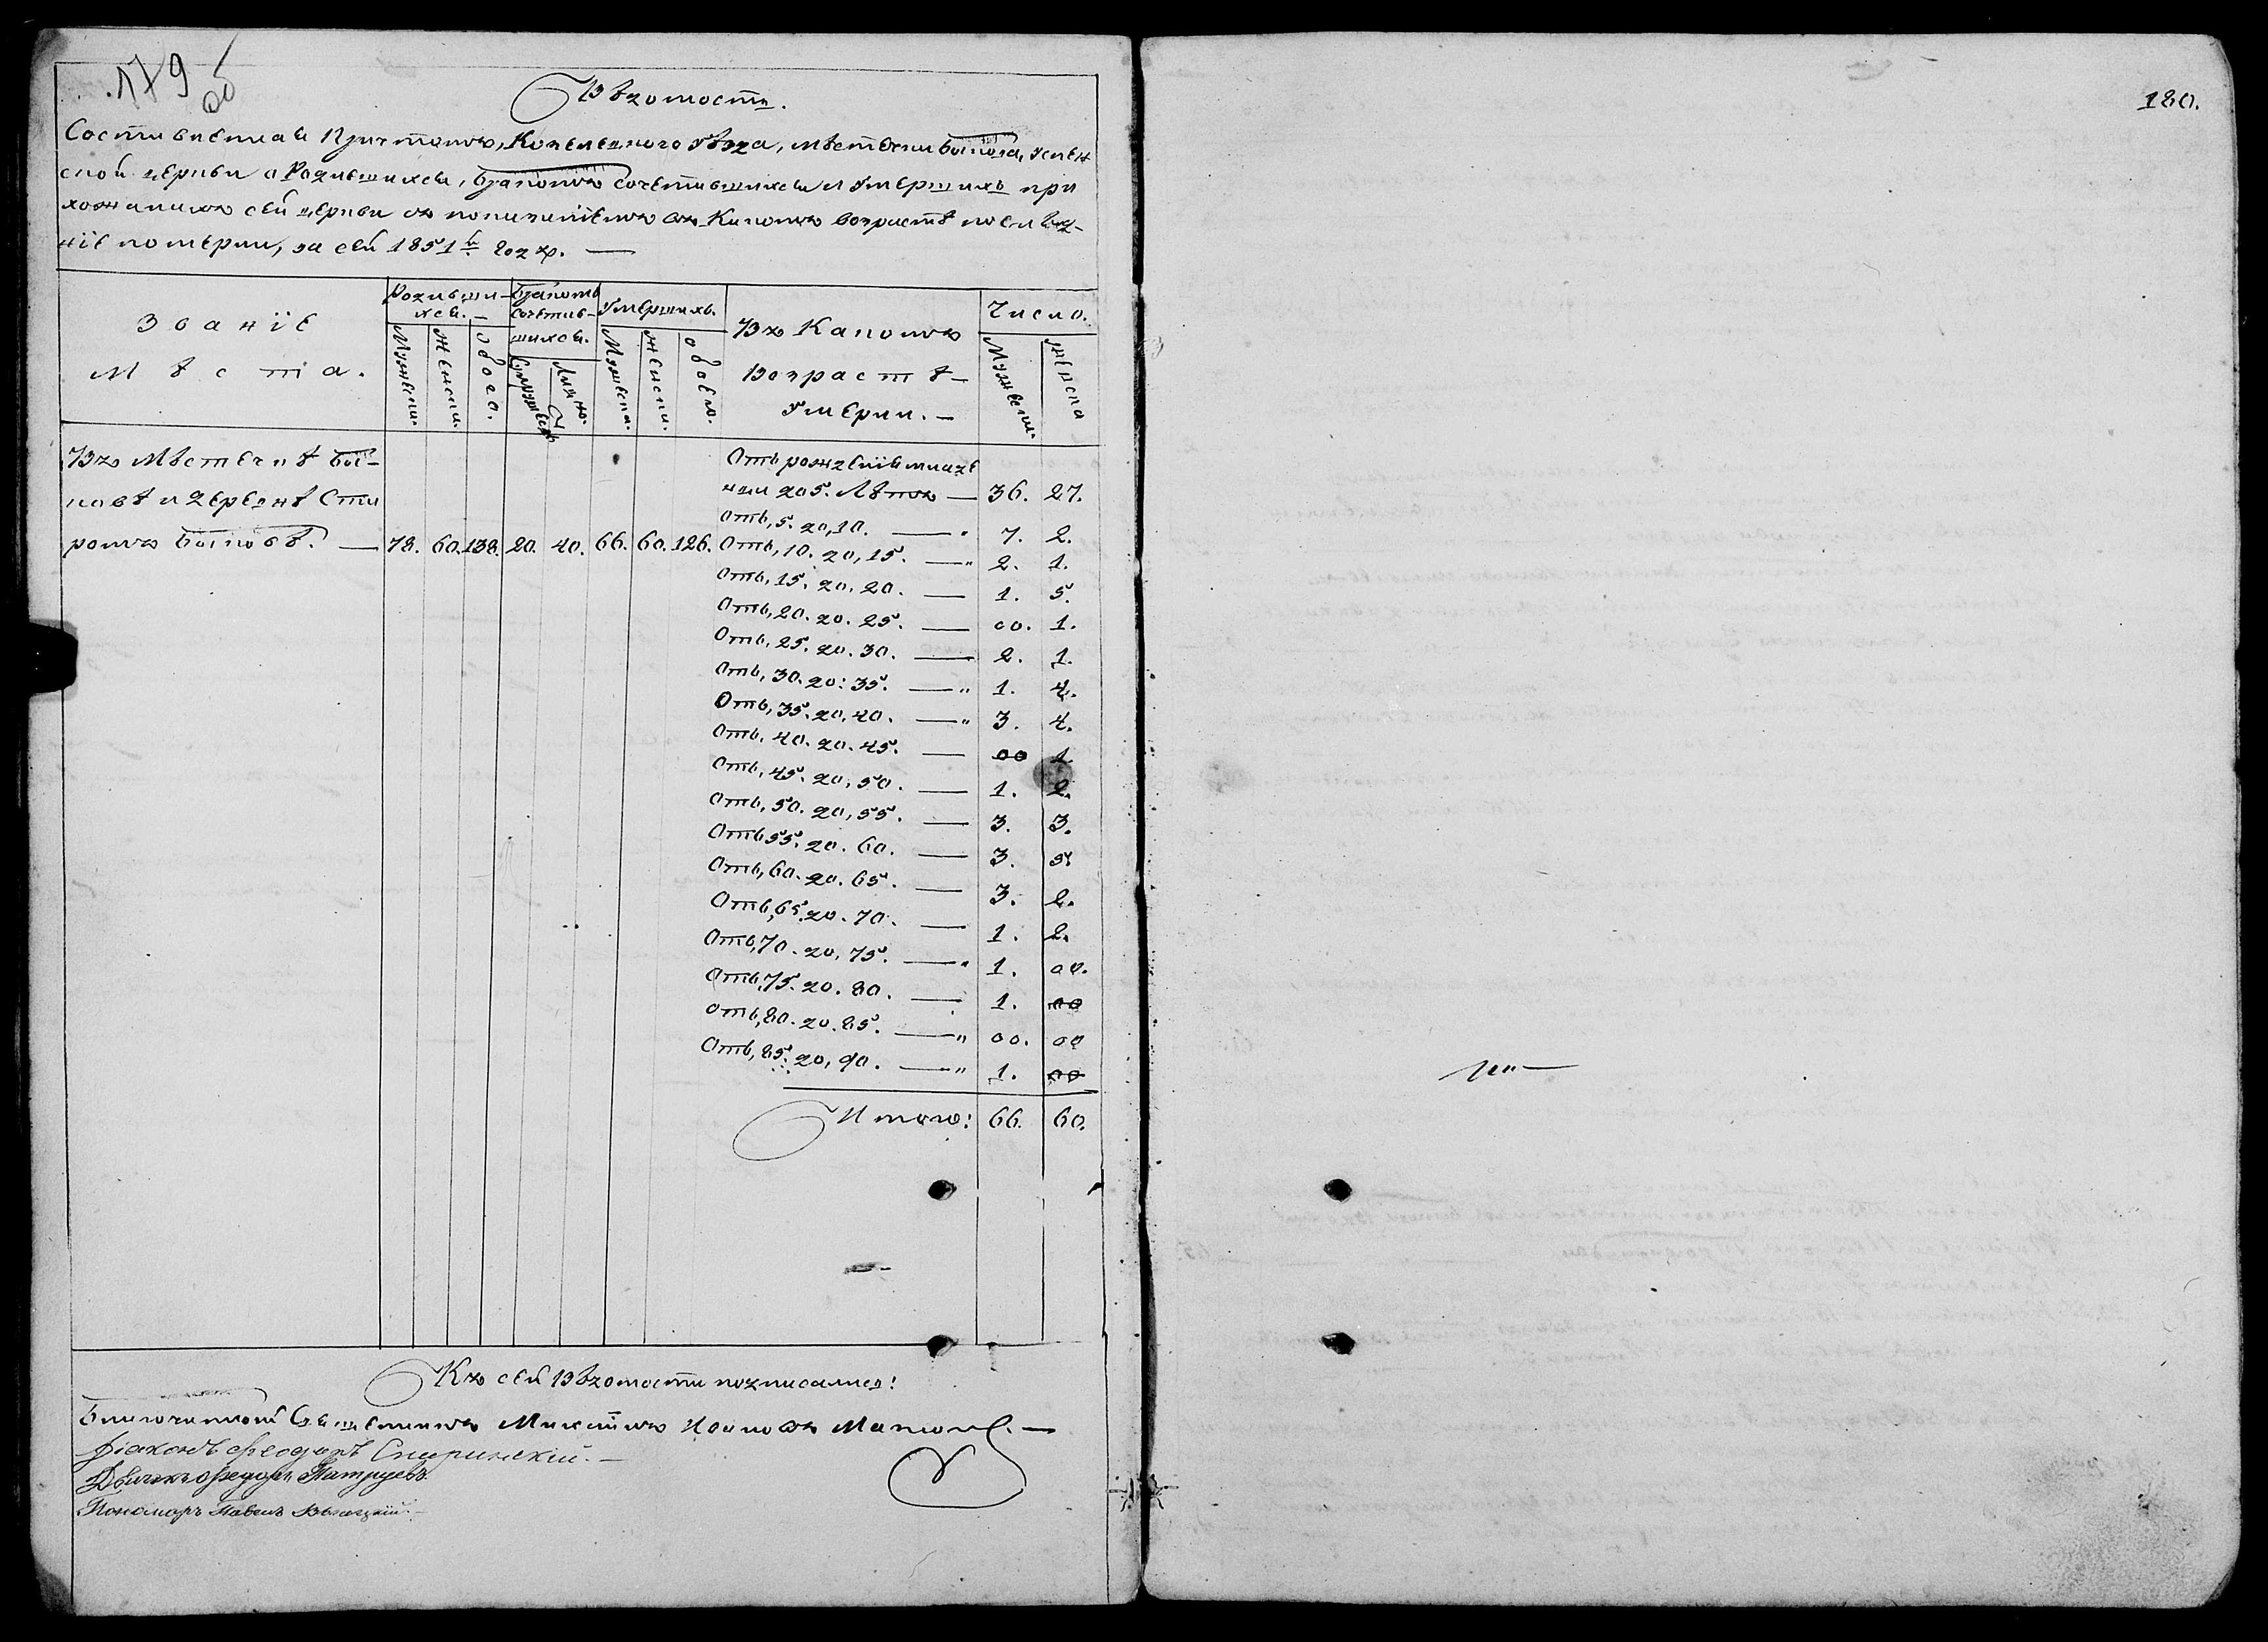 179
об
180.
Вѣдомость.
Составленная Причтомъ, Ковельскаго уѣзда, мѣстечка Быковa, Успен
ской церкви о Родившихся, бракомъ сочетавшихся и Умершихъ при
хожанахъ сей церкви съ показаніемъ въ Какомъ возрастѣ послѣд-
ніе померли, за сей 1851й годъ. —
Званіе
Мѣста.
Родивши-
хся. —
Мужеска.
Женска.
обоего.
Бракомъ
сочетав-
шихся.
Супружествъ
Лицъ.
Умершихъ.
Мужеска.
Женска.
обоего.
Въ Какомъ
Возрастѣ
Умерли. —
Число.
Мужеска.
Женска
Въ Мѣстечкѣ
и Деревнѣ Ста
ромъ — 78. 60. 138. 20. 40. 66. 60. 126.
Отъ рожденія младе
нцы до 5. Лѣтъ — 36. 27.
Отъ, 5. до, 10. — 7. 2.
Отъ, 10. до, 15. — 2. 1.
Отъ, 15. до, 20. — 1. 5.
Отъ, 20. до. 25. — 00. 1.
Отъ, 25. до. 30. — 2. 1.
Отъ, 30. до: 35. — 1. 4.
Отъ, 35. до, 40. — 3. 4.
Отъ, 40. до. 45. — 00 1
Отъ, 45. до, 50. — 1. 2.
Отъ, 50. до, 55. — 3. 3.
Отъ 55. до. 60. — 3. 5.
Отъ, 60. до. 65. — 3. 2.
Отъ, 65. до. 70. — 1. 2.
Отъ, 70. до, 75. — 1. 00.
Отъ, 75. до. 80. — 1. 00
Отъ, 80. до. 85. — 00. 00
Отъ, 85. до, 90. — 1. 00
Итого: 66. 60.
Къ сей Вѣдомости подписались:
Благочинный Священникъ Іоаннъ
Діаконъ Феодоръ —
Дьячекъ Федоръ
Пономарь Павелъ